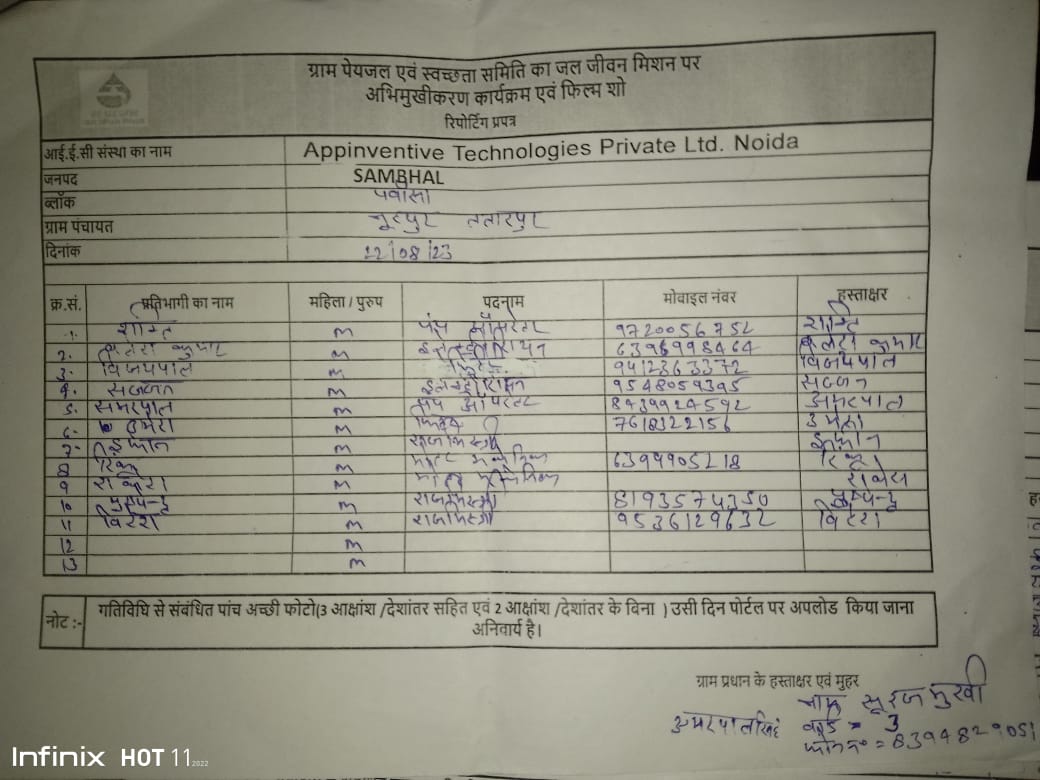 ग्राम पेयजल एवं स्वच्छता समिति का जल जीवन मिशन पर
अभिमुखीकरण कार्यक्रम एवं फिल्म शो
रिपोर्टिंग प्रपत्र
आई.ई.सी संस्था का नाम Appinventive Technologies Private Ltd. Noida
जनपद SAMBHAL
ब्लॉक पवांसा
ग्राम पंचायत नूरपुर ततारपुर
दिनांक 22/08/23
क्र.सं. प्रतिभागी का नाम महिला / पुरुष पदनाम मोबाइल नंबर हस्ताक्षर
1. शान्ति M पंप 9720056752 शान्ति
2. कुमार M 6396998464 कुमार
3. विजयपाल M 9412363372 विजयपाल
4. सज्जन M 9548059395 सज्जन
5. अमरपाल M पंप ऑपरेटर 8439924592 अमरपाल
6. उमेश M 7618322156 उमेश
7. इरफान M राजमिस्त्री इरफान
8 रिंकू M मोटर मकेनिक 6394905218 रिंकू
9 राकेश M मोटर मकेनिक राकेश
10 पुष्पेन्द्र M राजमिस्त्री 8193574350 पुष्पेन्द्र
11 विरेश M राजमिस्त्री 9536129632 विरेश
12 M
13 M
नोट :- गतिविधि से संबंधित पांच अच्छी फोटो(3 आक्षांश /देशांतर सहित एवं 2 आक्षांश /देशांतर के विना ) उसी दिन पोर्टल पर अपलोड किया जाना
अनिवार्य है।
ग्राम प्रधान के हस्ताक्षर एवं मुहर
नाम सूरजमुखी
अमरपाल सिंह वार्ड = 3
फोन न० = 8394829051
Infinix HOT 11 2022